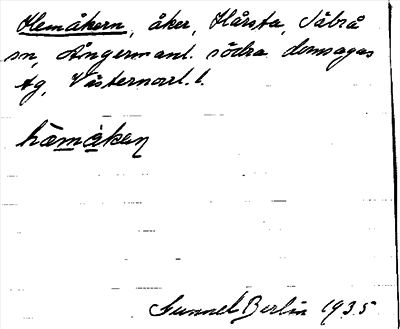 Hemåkern, åker, Hårsta, Säbrå
sn, Ångermanl. södra domsagas
tg, Västernorrl. l.
hèmàkeɳ
Gunnel Berlin 1935